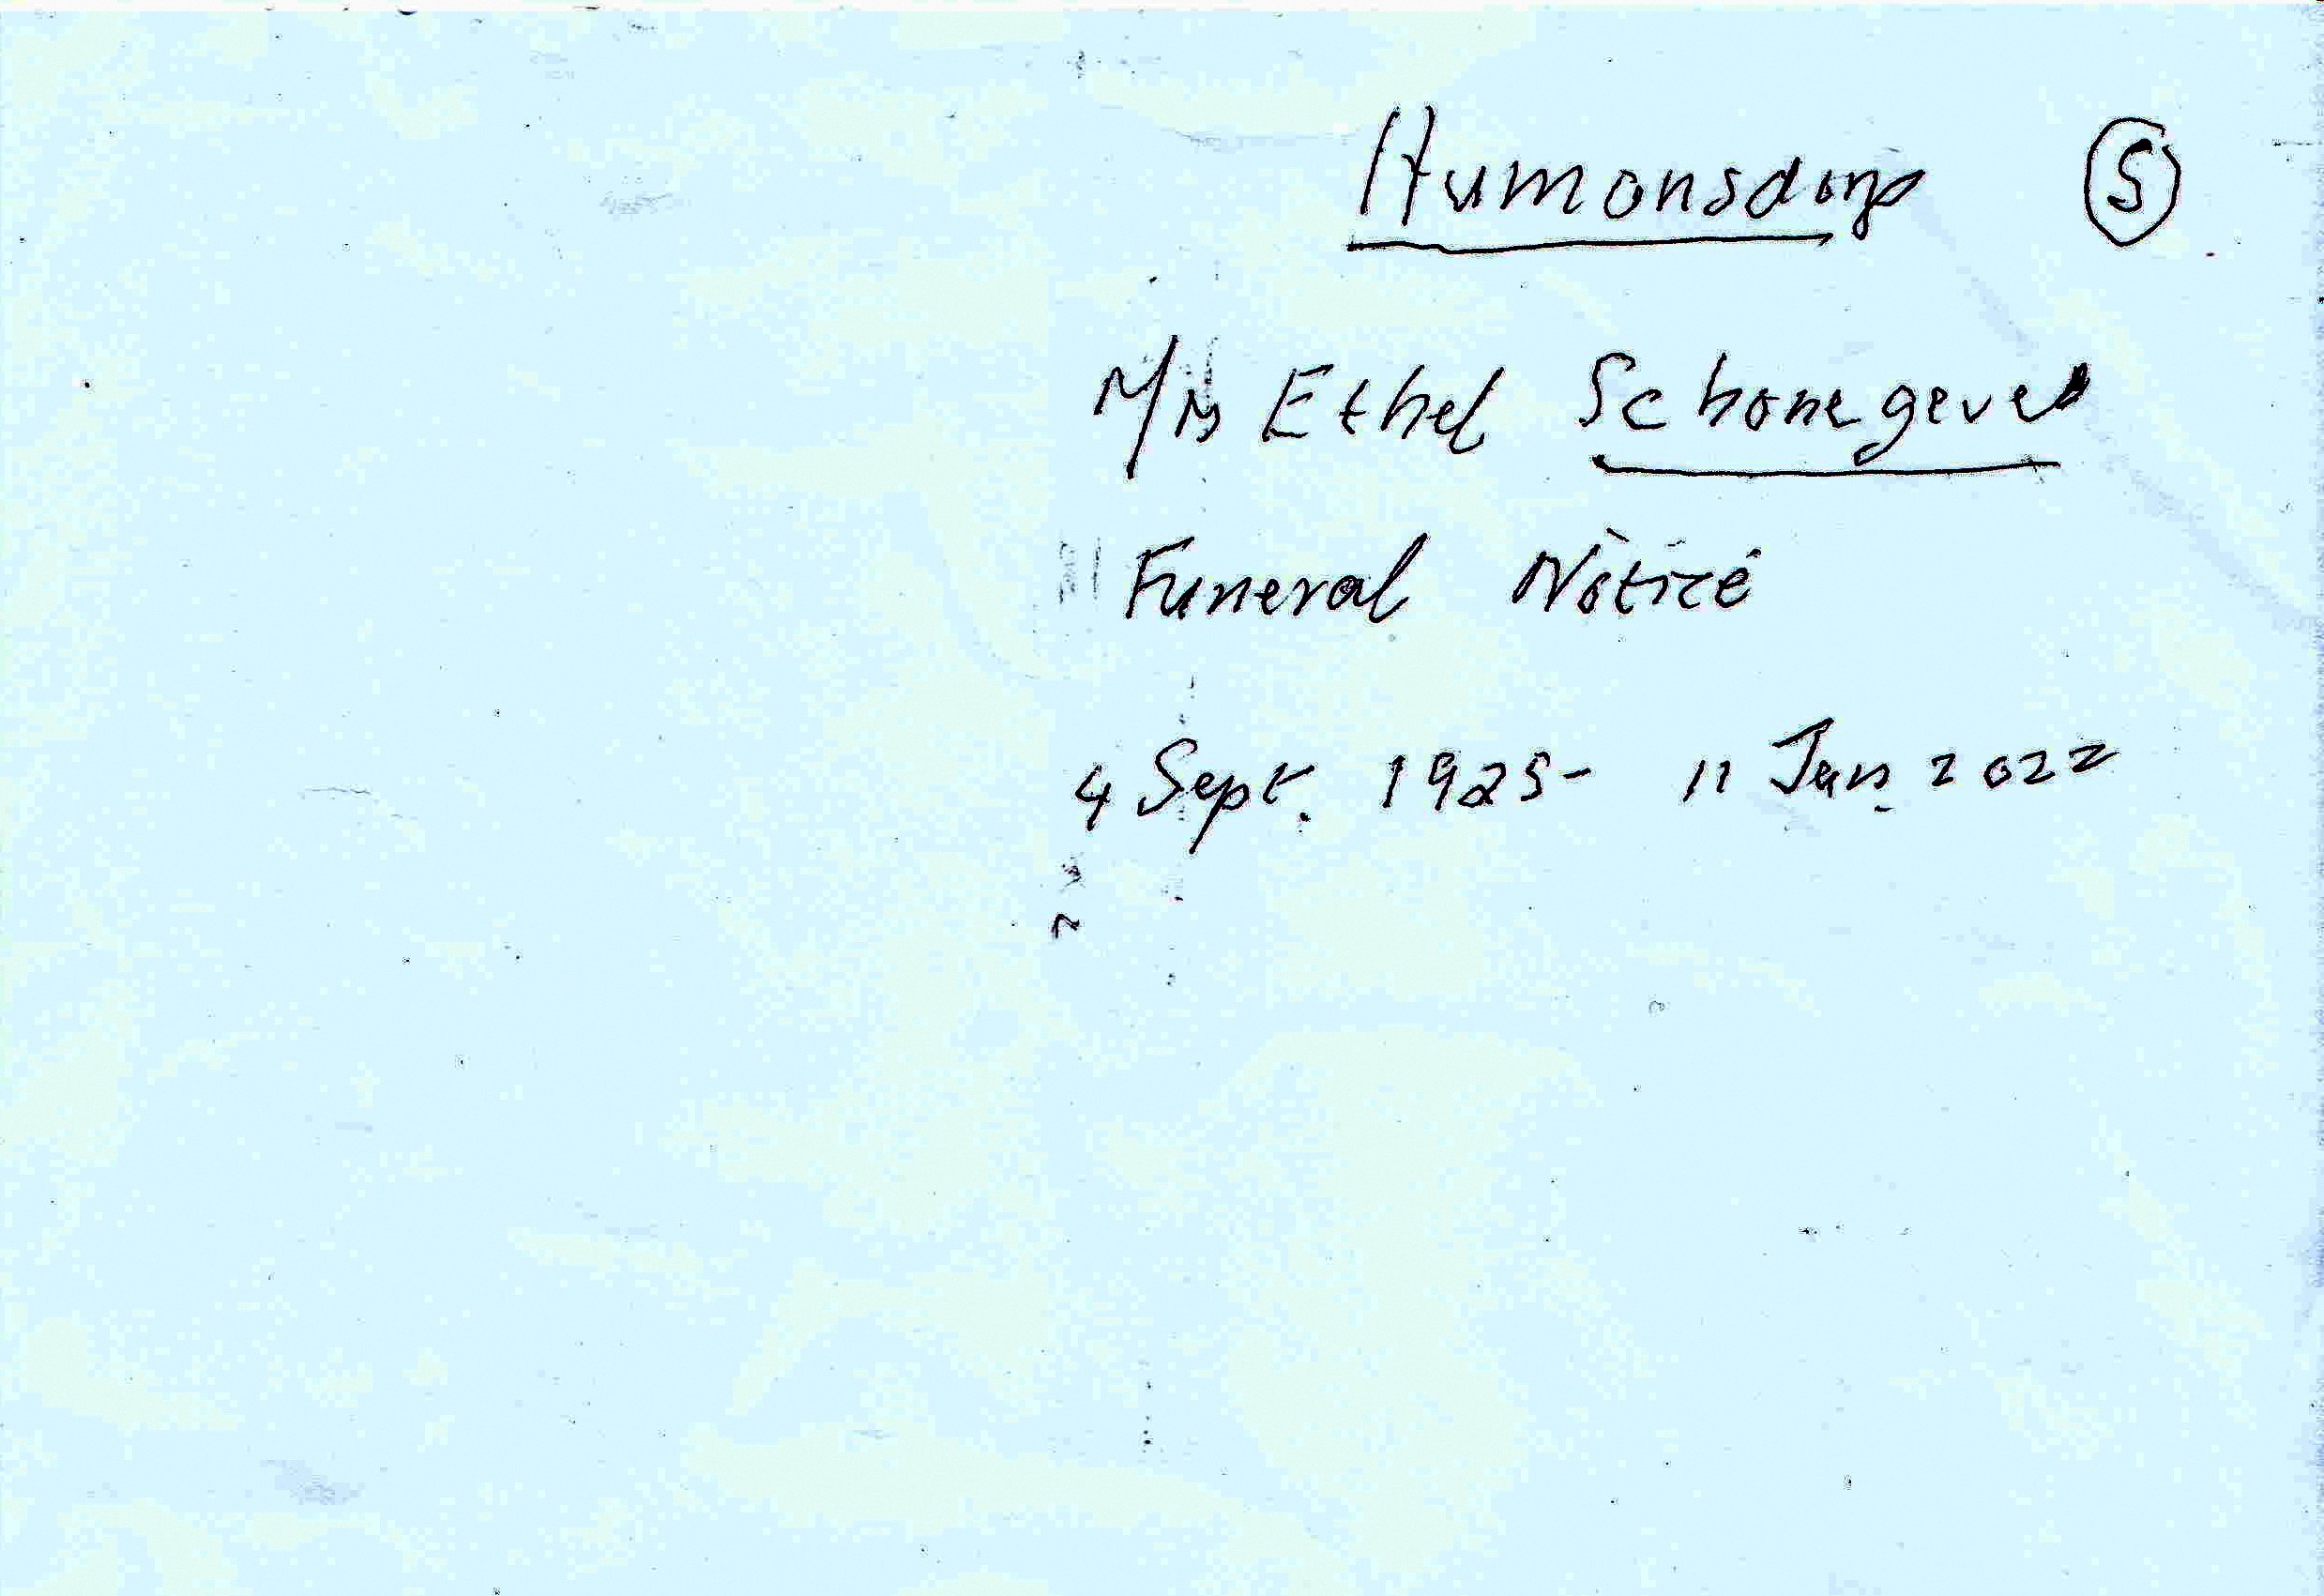 Humansdorp S
M/s Ethel Schonegevel
Funeral Notice
4 Sept. 1925 - 11 Jan. 2022